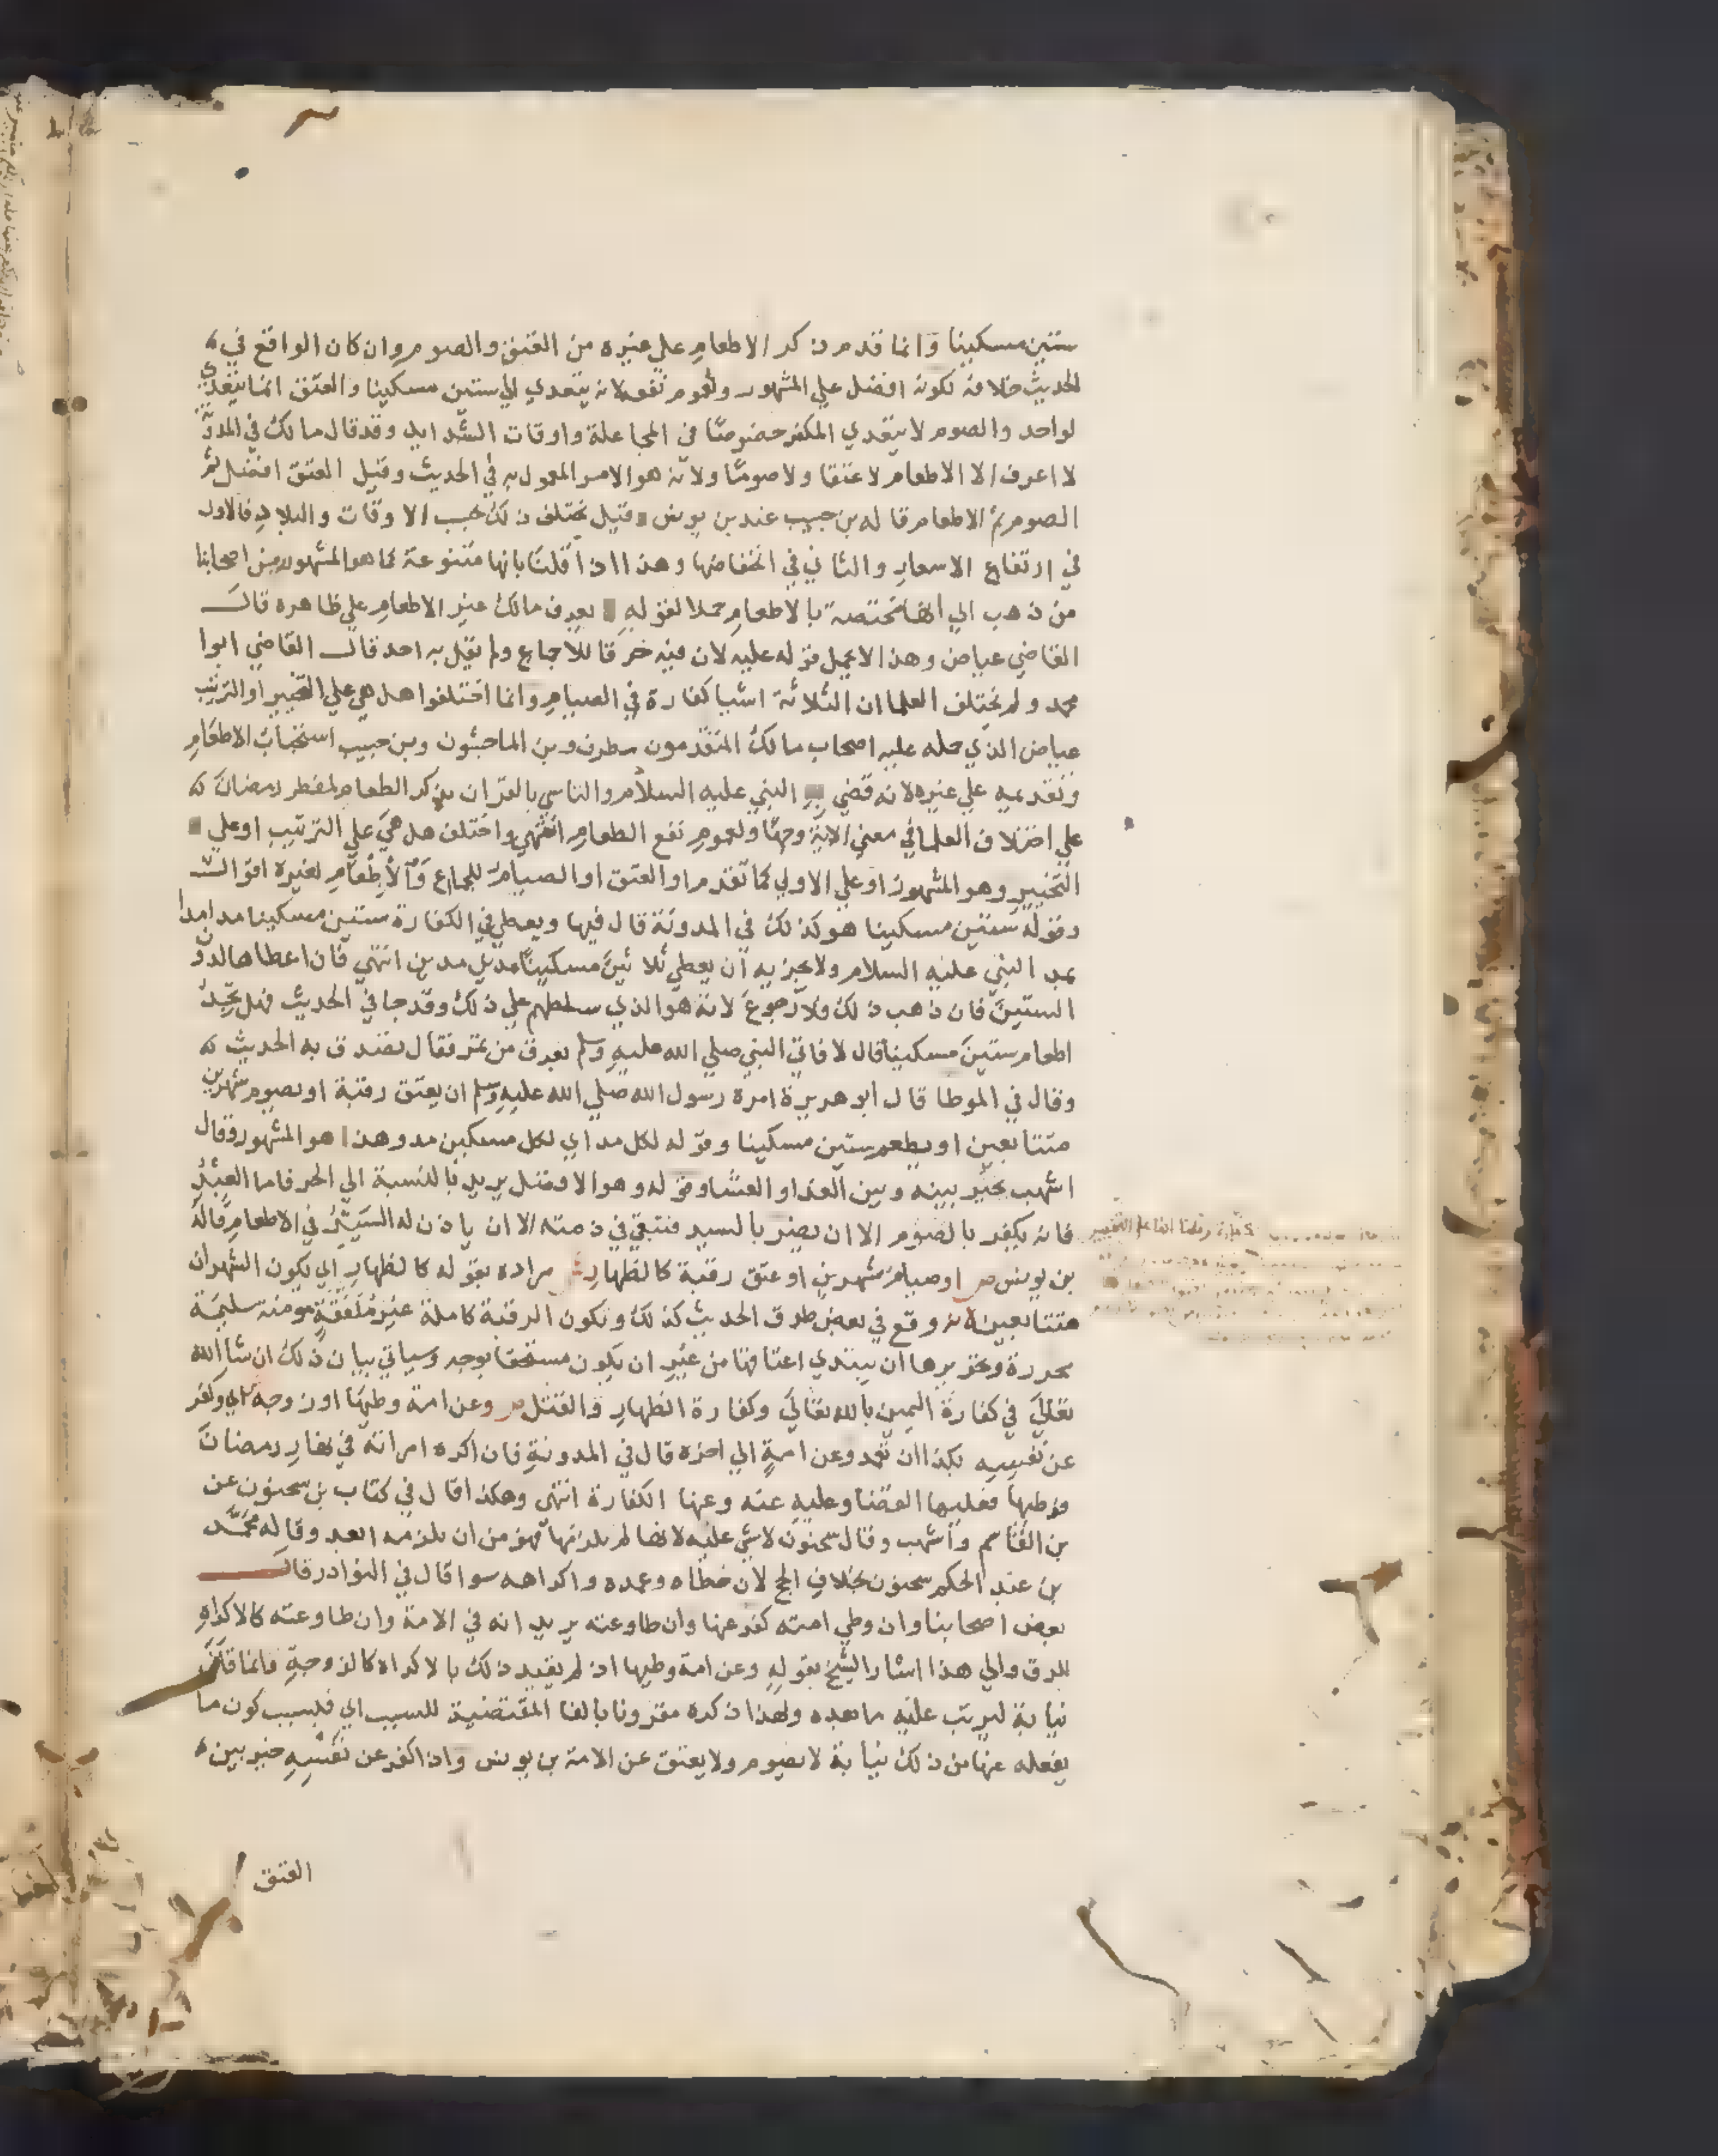 ستين مسكينا وانما قدم ذكر الاطعام علي غيره من العتق والصوم وان كان الواقع في
الحديث خلافه لكونه افضل علي المشهور ولعموم نفعه لانه يتعدي الي ستين مسكينا والعتق انما يتعدي
لواحد والصوم لا يتعدي المكفر خصوصا في المجاعة واوقات الشدايد وقد قال مالك في المدونة
لا اعرف الا الاطعام لا عتقا ولا صوما ولانه هو الامر المعمول به في الحديث وقيل العتق افضل ثم
الصوم ثم الاطعام قاله بن حبيب عند بن يونس وقيل يختلف ذلك بحسب الاوقات والبلاد فالاول
في ارتفاع الاسعار والثاني في انخفاضها وهذا اذا قلنا بانها متنوعة كما هو المشهور ومن اصحابنا
من ذهب الي انها مختصة بالاطعام حملا لقوله يعرف مالك غير الاطعام علي ظاهره قال
القاضي عياض وهذا لا يحمل قوله عليه لان فيه خرقا للاجماع ولم يقل به احد قال القاضي ابوا
محمد ولم يختلف العلما ان الثلاثة اشيا كفارة في الصيام وانما اختلفوا هل هي علي التخيير او الترتيب
عياض الذي حمله عليه اصحاب مالك المتقدمون مطرف وبن الماجشون وبن حبيب استحباب الاطعام
وتقديمه علي غيره لانه قضي به النبي عليه السلام والتاسي بالقران بذكر الطعام لمفطر رمضان
علي اختلاف العلما في معني الاية وحبها ولعموم نفع الطعام انتهي واختلف هل هي علي الترتيب او علي
التخيير وهو المشهور او علي الاولي كما تقدم او العتق او الصيام للجماع والاطعام لغيره اقوال
وقوله ستين مسكينا هو كذلك في المدونة قال فيها ويعطي في الكفارة ستين مسكينا مدا مدا
بمد النبي عليه السلام ولا يجزيه ان يعطي ثلاثين مسكينا مدين مدين انتهي فان اعطاها لدون
الستين فان ذهب ذلك فلا رجوع لانه هو الذي سلطهم علي ذلك وقد جا في الحديث فهل تجد
اطعام ستين مسكينا قال لا فاتي النبي صلي الله عليه وسلم بعرق من تمر فقال تصدق به الحديث
وقال في الموطا قال ابو هريرة امره رسول الله صلي الله عليه وسلم ان يعتق رقبة او يصوم شهرين
متتابعين او يطعم ستين مسكينا وقوله لكل مد اي لكل مسكين مد وهذا هو المشهور وقال
اشهب يخير بينه وبين الغدا والعشا وقوله وهو الافضل يريد بالنسبة الي الحر فاما العبد
فانه يكفر بالصوم الا ان يضر بالسيد فتبقي في ذمته الا ان ياذن له السيد في الاطعام قاله
بن يونس ص او صيام شهرين او عتق رقبة كالظهار ش مراده بقوله كالظهار اي يكون الشهران
متتابعين لانه وقع في بعض طرق الحديث كذلك وتكون الرقبة كاملة غير ملفقة مومنة سليمة
محررة وتحريرها ان يبتدي اعتاقها من غير ان يكون مستحقا بوجه وسياتي بيان ذلك ان شا الله
تعالي في كفارة اليمين بالله تعالي وكفارة الظهار والقتل ص وعن امة وطيها او زوجة اكره وكفر
عن نفسه بكذا ان تعمد وعن امة الي اخره قال في المدونة فان اكره امراته في نهار رمضان
فوطيها فعليهما القضا وعليه عنه وعنها الكفارة انتهي وهكذا قال في كتاب بن سحنون عن
بن القاسم واشهب وقال سحنون لا شي عليه لانها لم يلزمها فهو من ان يلزمه ابعد وقاله محمد
بن عبد الحكم سحنون بخلاف الحج لان خطاه وعمده واكراهه سوا قال في النوادر قال
بعض اصحابنا وان وطي امته كفر عنها وان طاوعته يريد انه في الامة وان طاوعته كالاكراه
للرق والي هذا اشار الشيخ بقوله وعن امة وطيها اذ لم يقيد ذلك بالاكراه كالزوجة وانما قال
نيابة ليرتب عليه ما بعده ولهذا ذكره مقرونا بالفا المقتضية للسبب اي فبسبب كون ما
يفعله عنها من ذلك نيابة لا يصوم ولا يعتق عن الامة بن يونس واذا كفر عن نفسه خير بين
العتق